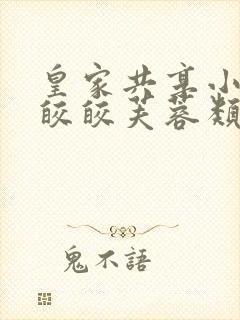 皇家共享小
皎皎芙蓉類
鬼不語